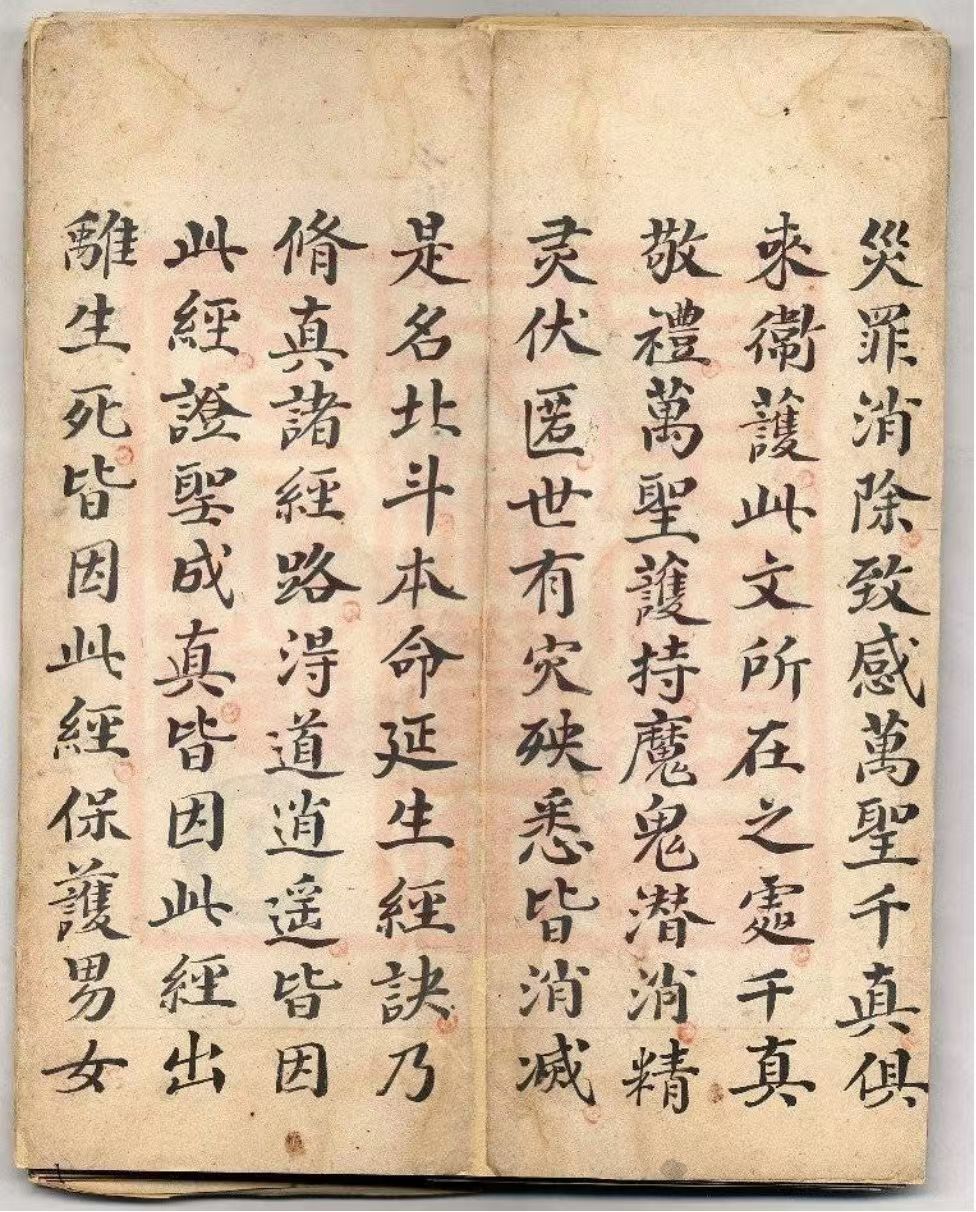 災罪消除致感萬聖千真俱
來衞護此文所在之處千真
敬禮萬聖護持魔鬼潜消精
灵伏匿世有灾殃悉皆消滅
是名北斗本命延生經訣乃
脩真諸經路淂道逍遥皆因
此經證聖成真皆因此經出
離生死皆因此經保護男女